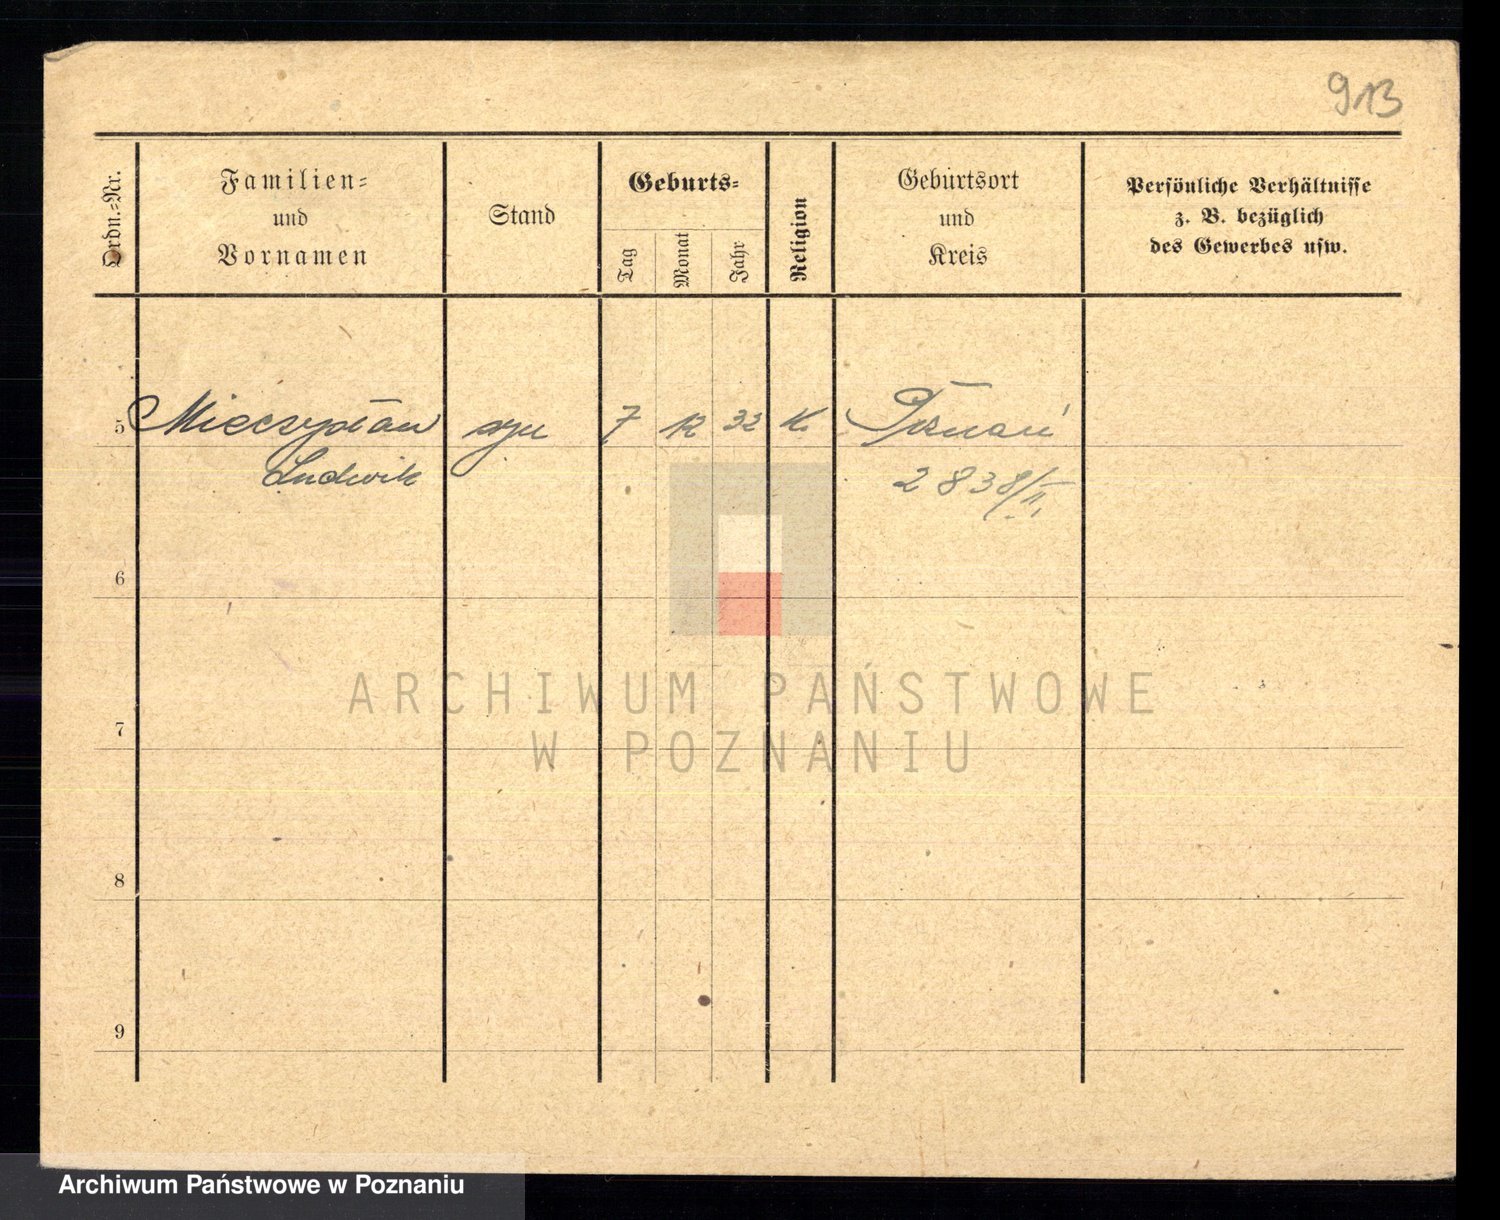 913
Ordn.-Nr.
Familien-
und
Vornamen
Stand
Geburts-
Tag
Monat
Jahr
Religion
Geburtsort
und
Kreis
Persönliche Verhältnisse
z. B. bezüglich
des Gewerbes usw.
5 Mieczysław syn 7 12 32 K. Poznań
Ludwik 2838/II.
6
ARCHIWUM PAŃSTWOWE
W POZNANIU
7
8
9
Archiwum Państwowe w Poznaniu